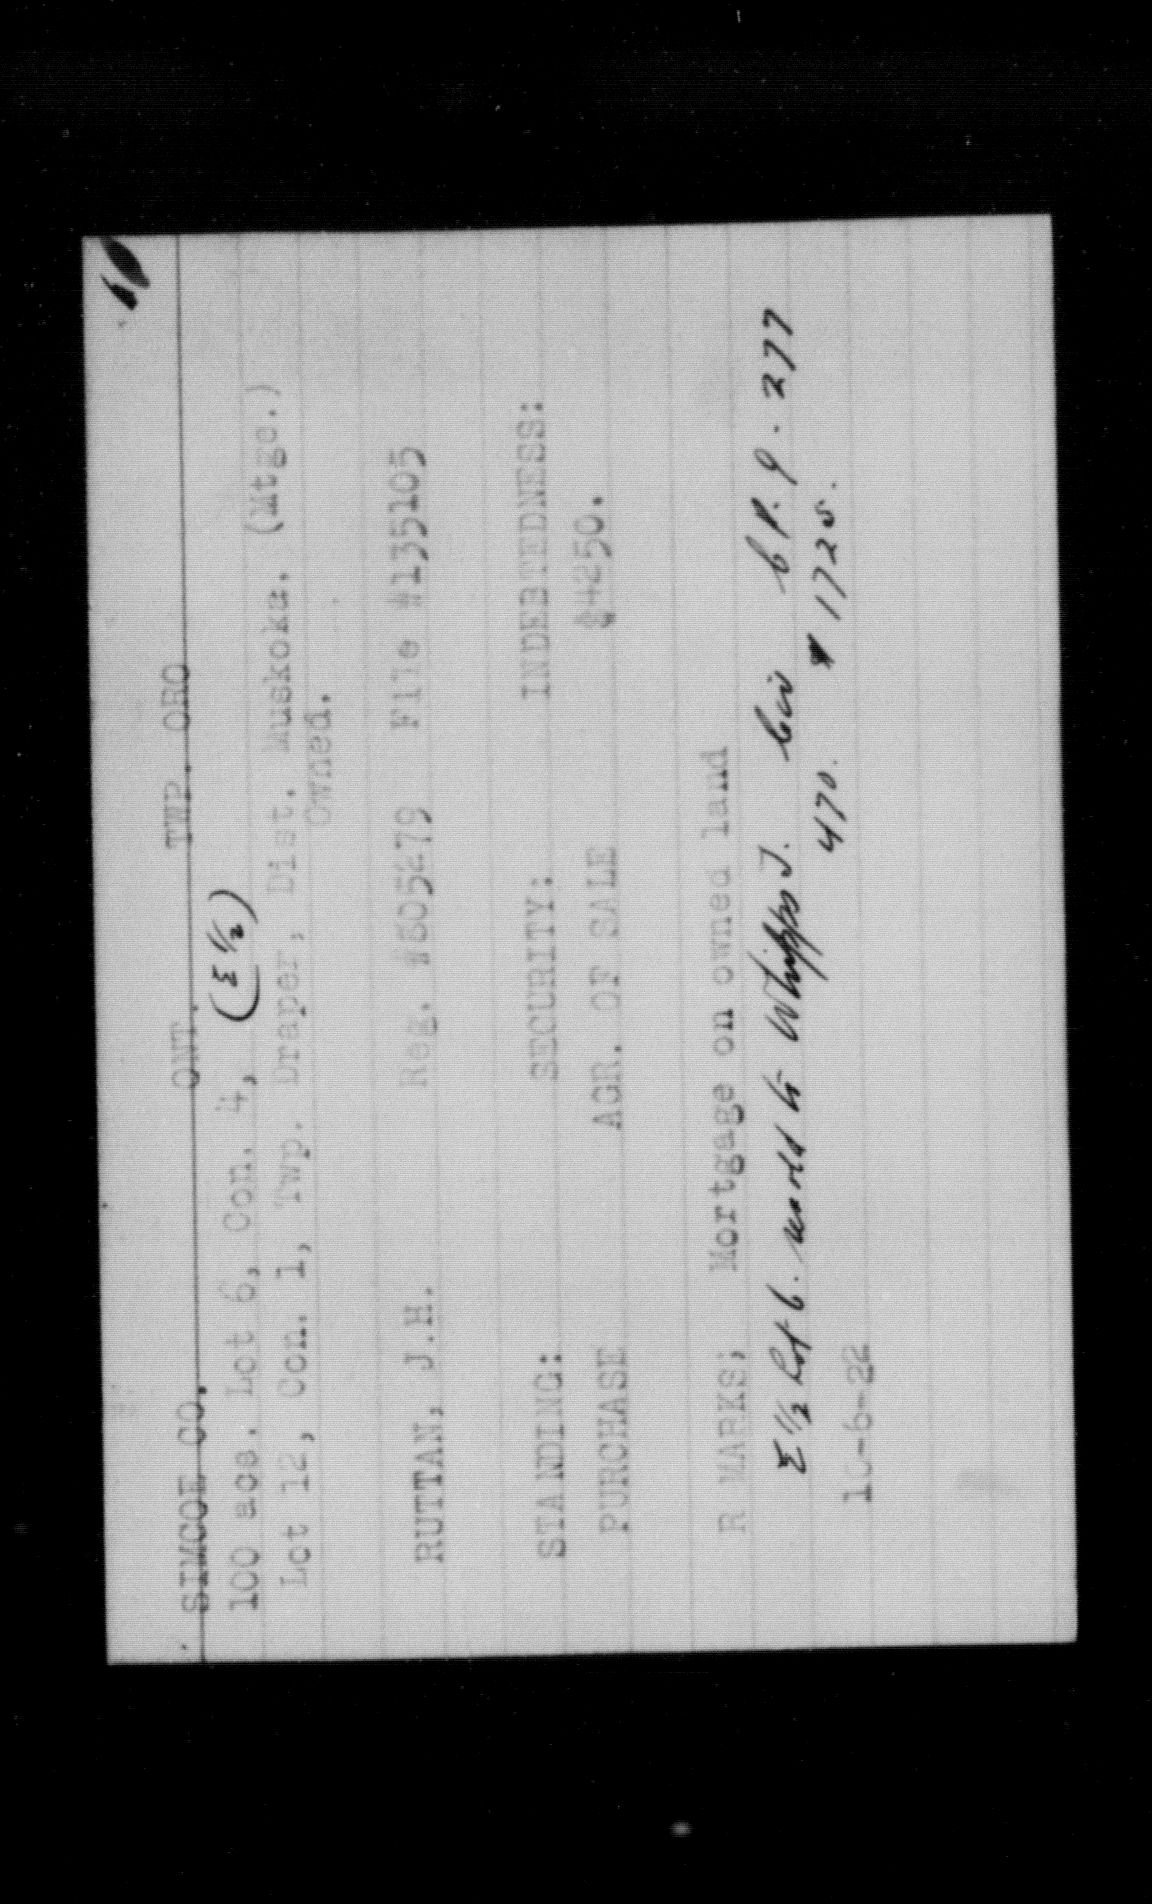 SIMCOE CO. ONT. TWP. ORO
100 acs. Lot 6, Con. 4, (E 1/2)
Lot 12, Con. 1, Twp. Draper, Dist. Muskoka. (Mtge.)
Owned.
RUTTAN, J.H. Reg. #505279 File #135105
STANDING: SECURITY: INDEBTEDNESS:
PURCHASE AGR. OF SALE $4250.
R MARKS; Mortgage on owned land
E 1/2 Lot 6. resold to Whipps J. Civ C P. 9. 277
470. $1725.
10-6-22